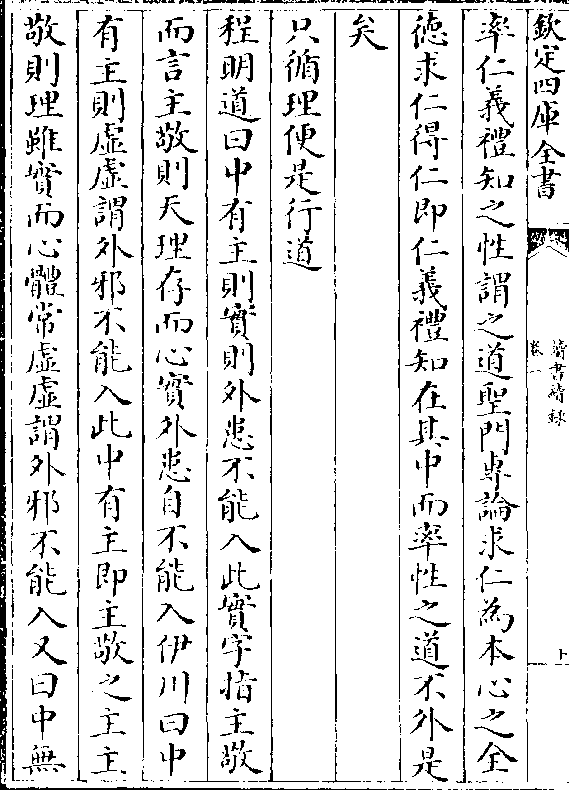 欽定四庫全書
讀書續錄
卷一
上
率仁義禮知之性謂之道聖門專論求仁為本心之全
徳求仁得仁即仁義禮知在其中而率性之道不外是
矣
只循理便是行道
程明道曰中有主則實實則外患不能入此實字指主敬
而言主敬則天理存而心實外患自不能入伊川曰中
有主則虛虛謂外邪不能入此中有主即主敬之主主
敬則理雖實而心體常虛虛謂外邪不能入又曰中無